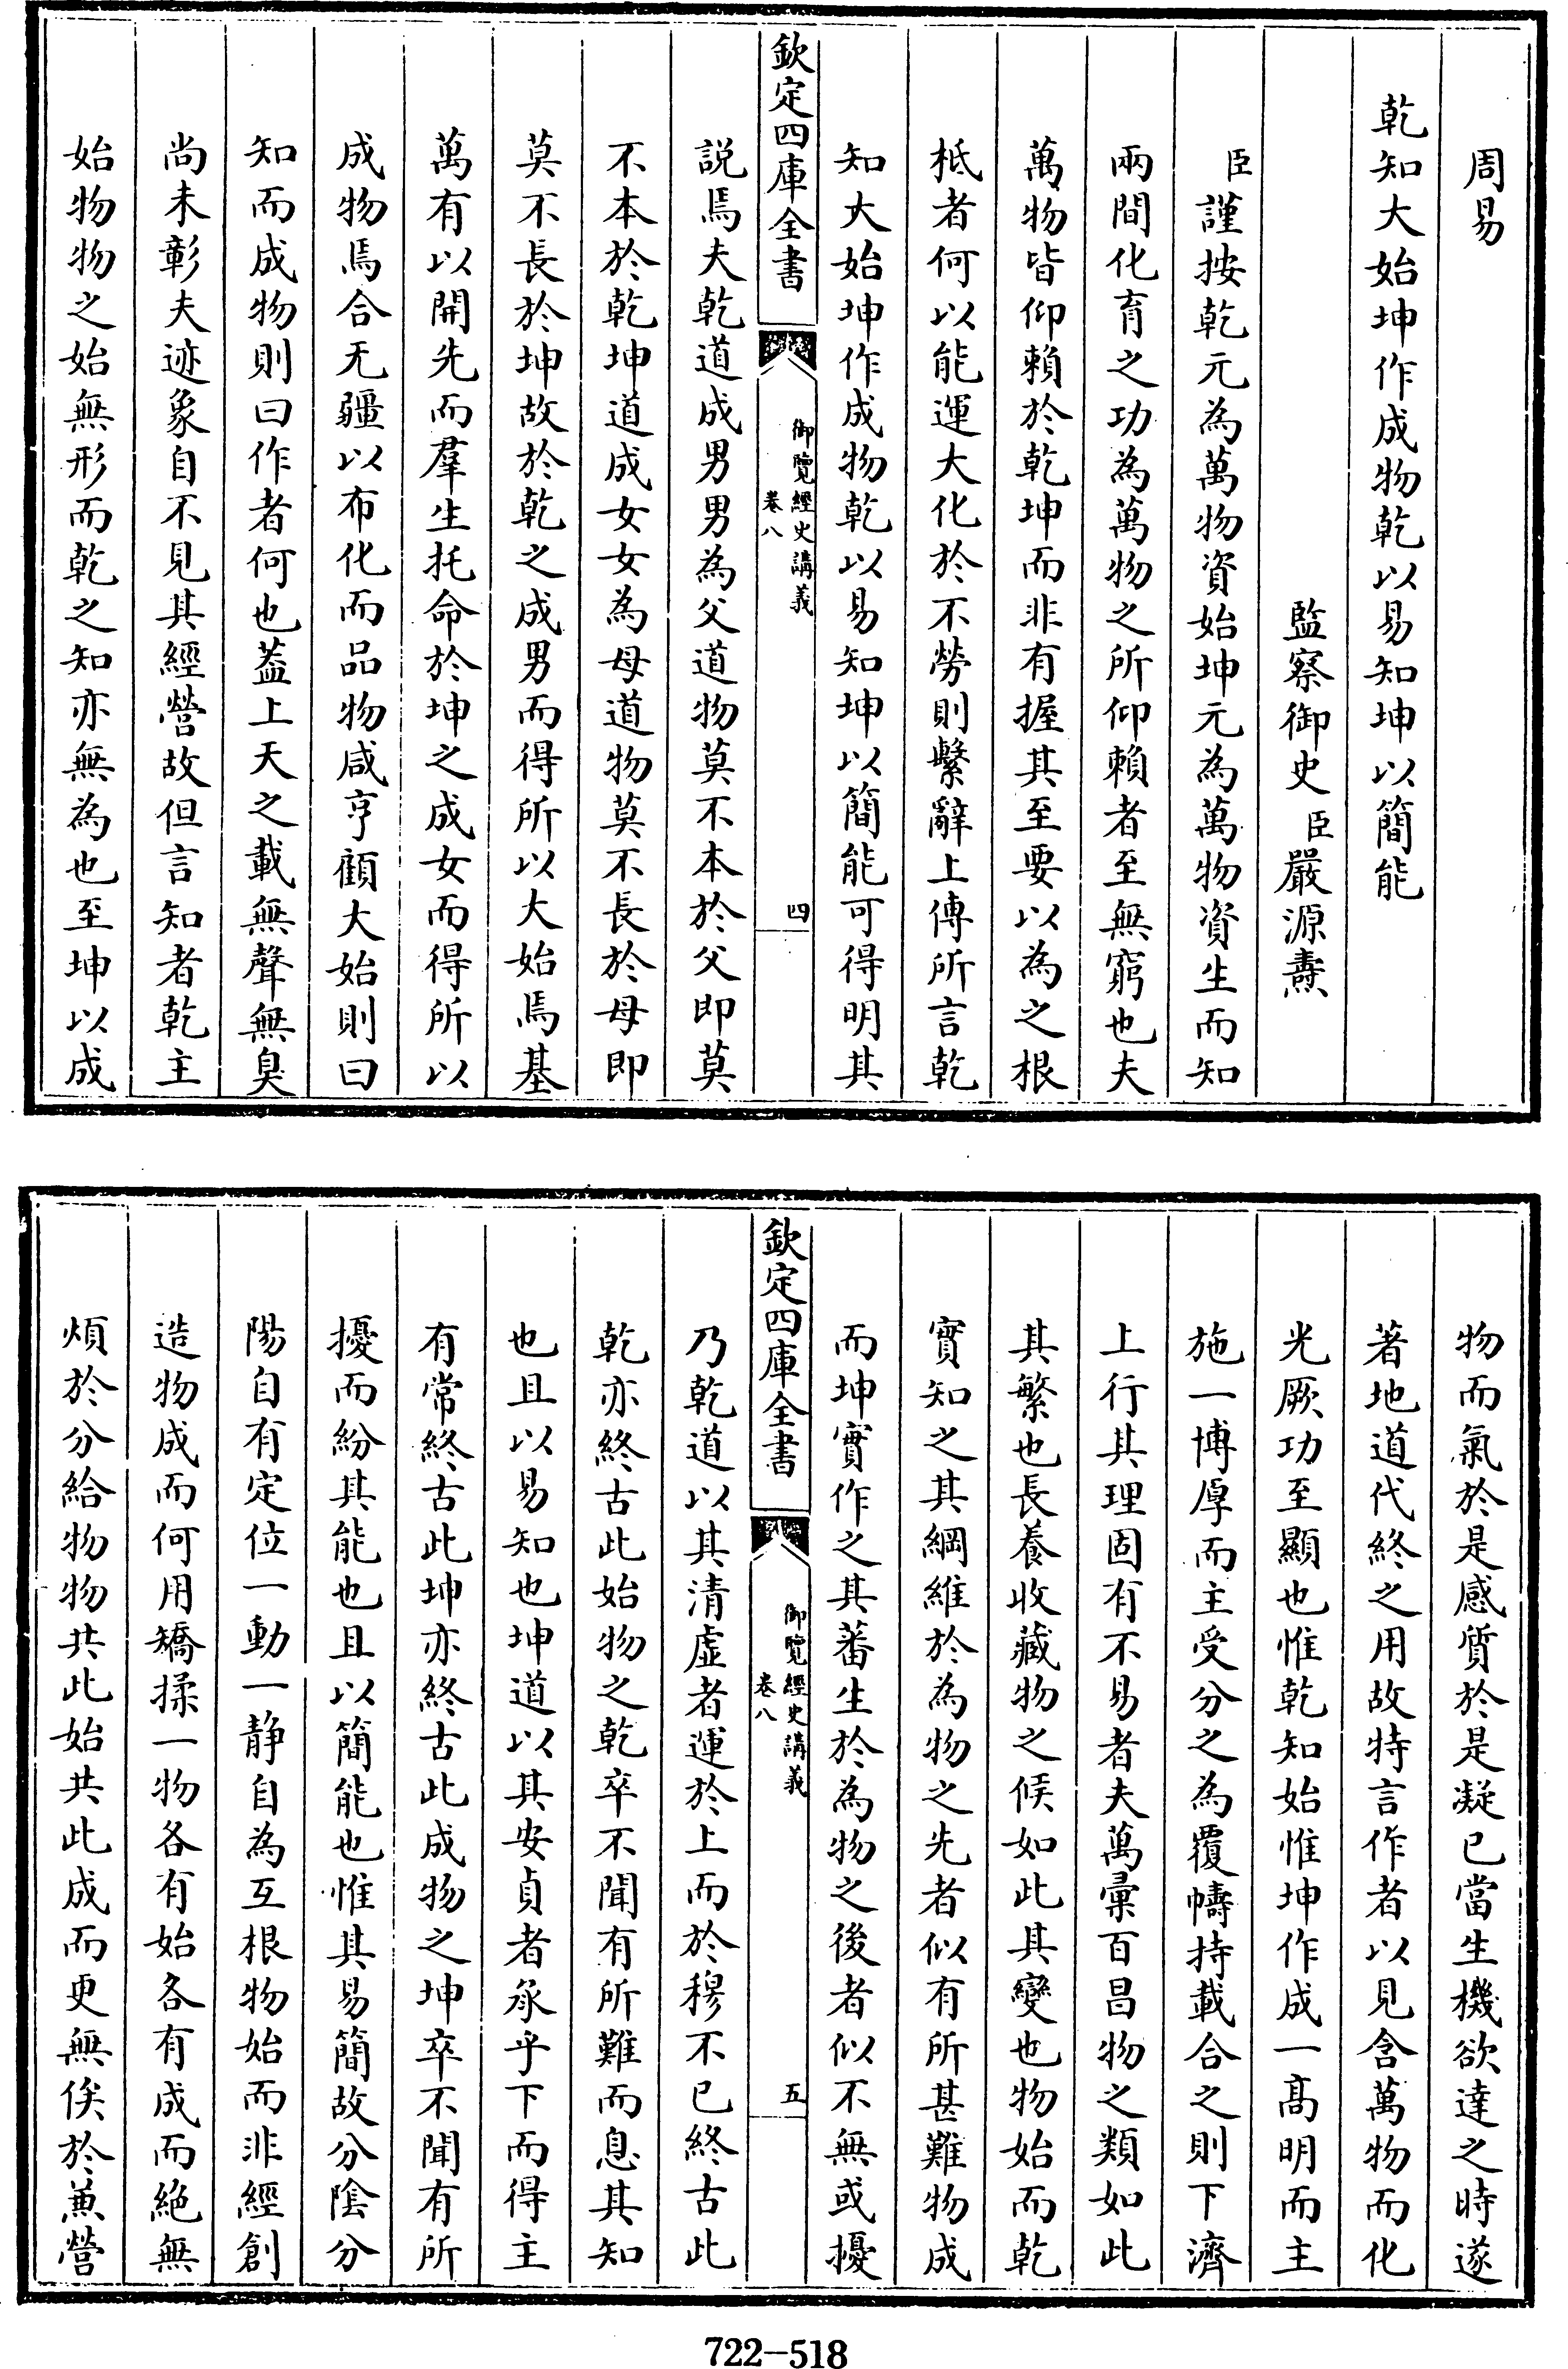 周易
乾知大始坤作成物乾以易知坤以簡能
監察御史臣嚴源燾
臣謹按乾元為萬物資始坤元為萬物資生而知
兩間化育之功為萬物之所仰賴者至無窮也夫
萬物皆仰賴於乾坤而非有握其至要以為之根
柢者何以能運大化於不勞則繫辭上傳所言乾
知大始坤作成物乾以易知坤以簡能可得明其
欽定四庫全書
御覽經史講義
卷八
四
説焉夫乾道成男男為父道物莫不本於父即莫
不本於乾坤道成女女為母道物莫不長於母即
莫不長於坤故於乾之成男而得所以大始焉基
萬有以開先而羣生托命於坤之成女而得所以
成物焉合无疆以布化而品物咸亨顧大始則曰
知而成物則曰作者何也葢上天之載無聲無臭
尚未彰夫迹象自不見其經營故但言知者乾主
始物物之始無形而乾之知亦無為也至坤以成
物而氣於是感質於是凝已當生機欲達之時遂
著地道代終之用故特言作者以見含萬物而化
光厥功至顯也惟乾知始惟坤作成一高明而主
施一博厚而主受分之為覆幬持載合之則下濟
上行其理固有不易者夫萬彙百昌物之類如此
其繁也長養收藏物之候如此其變也物始而乾
實知之其綱維於為物之先者似有所甚難物成
而坤實作之其蕃生於為物之後者似不無或擾
欽定四庫全書
御覽經史講義
卷八
五
乃乾道以其清虛者運於上而於穆不已終古此
乾亦終古此始物之乾卒不聞有所難而息其知
也且以易知也坤道以其安貞者承乎下而得主
有常終古此坤亦終古此成物之坤卒不聞有所
擾而紛其能也且以簡能也惟其易簡故分陰分
陽自有定位一動一静自為互根物始而非經創
造物成而何用矯揉一物各有始各有成而絕無
煩於分給物物共此始共此成而更無俟於兼營
722-518